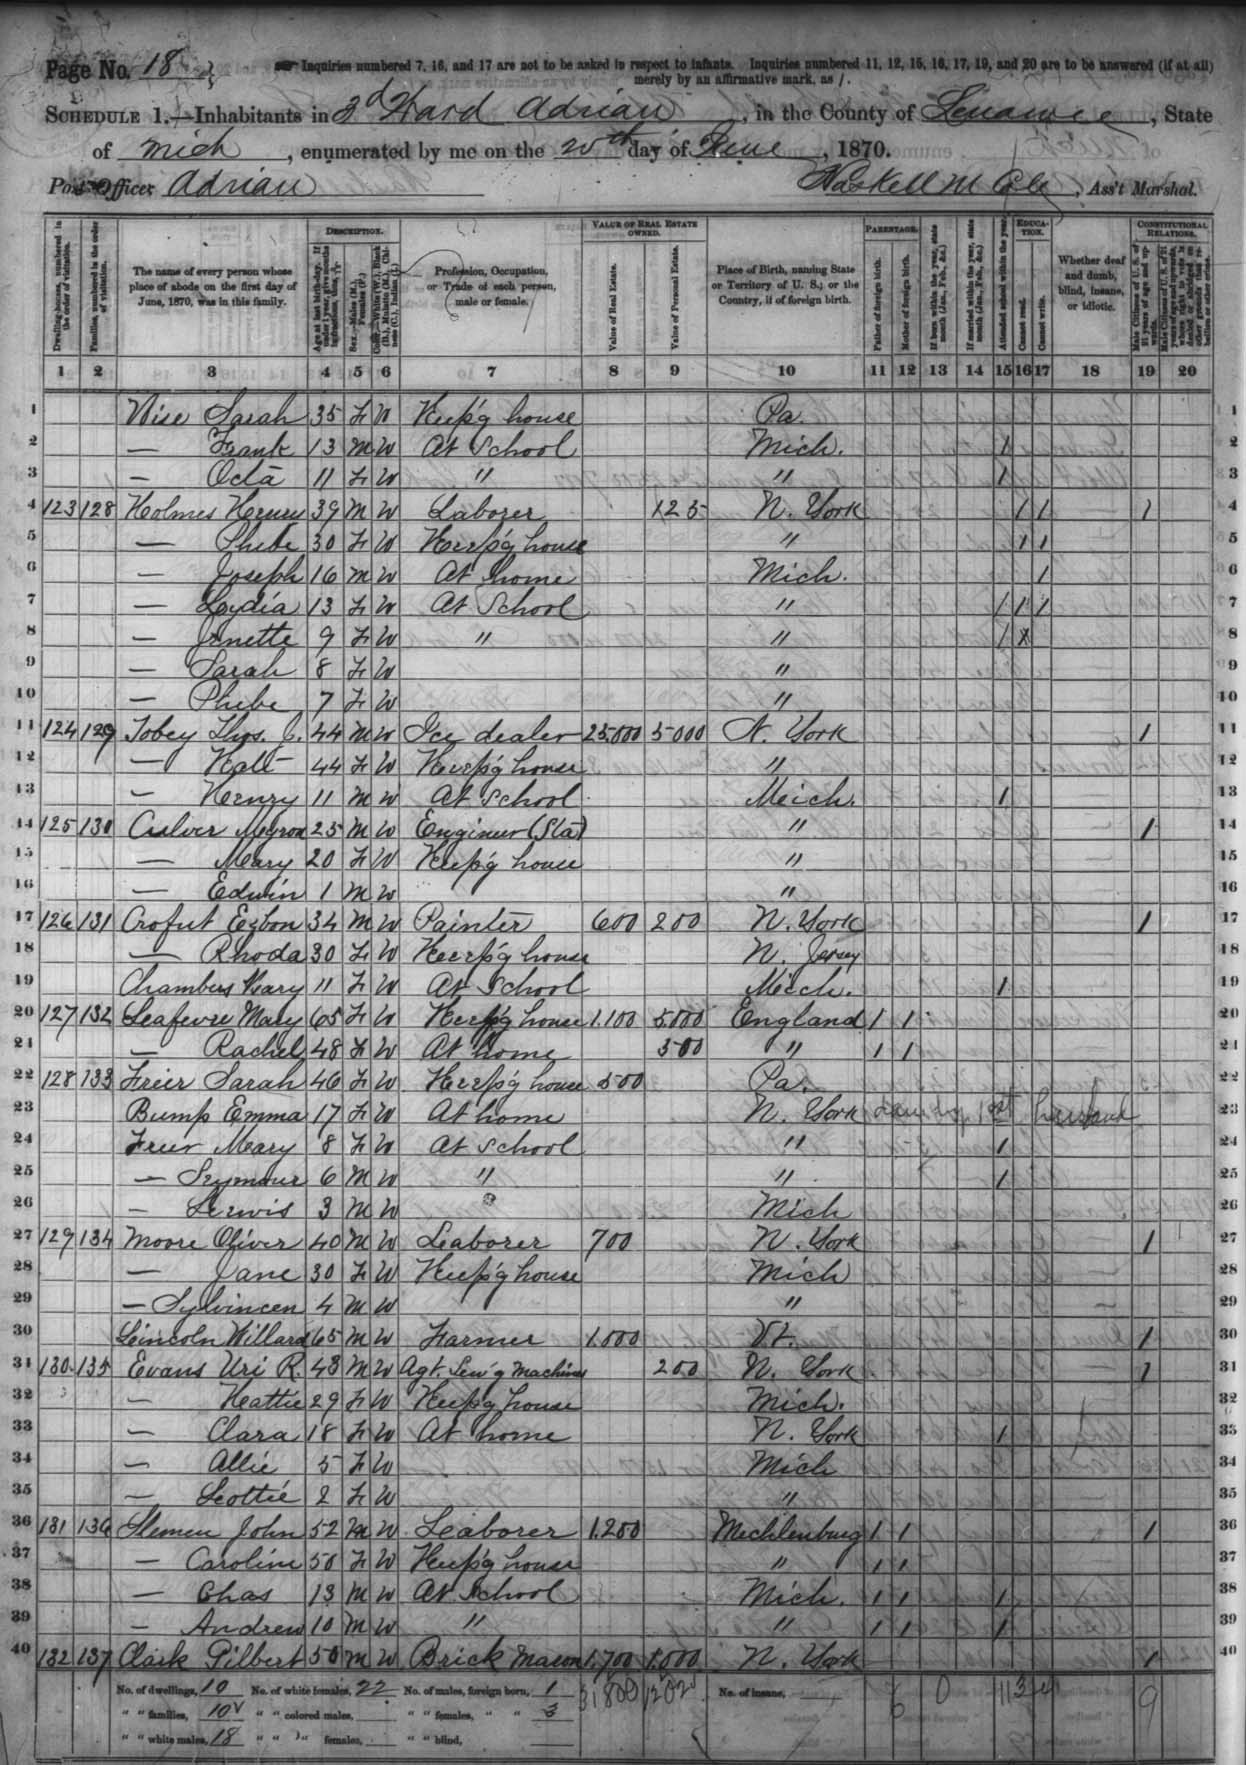 Page No. 18
Inquiries numbered 7, 16, and 17 are not to be asked in respect to infants. Inquiries numbered 11, 12, 15, 16, 17, 19, and 20 are to be answered (if at all)
merely by an affirmative mark, as /.
SCHEDULE 1.—Inhabitants in 3d Ward Adrian, in the County of Lenawee, State
of Mich, enumerated by me on the 20th day of June, 1870.
Post Office: Adrian Haskell M Cole, Ass't Marshal.
DESCRIPTION. VALUE OF REAL ESTATE OWNED. PARENTAGE. EDUCATION. CONSTITUTIONAL RELATIONS.
Dwelling-houses, numbered in the order of visitation.
Families, numbered in the order of visitation.
The name of every person whose place of abode on the first day of June, 1870, was in this family.
Age at last birth-day. If under 1 year, give months in fractions, thus,
Sex.—Males (M.), Females (F.)
Color.—White (W.), Black (B.), Mulatto (M.), Chinese (C.), Indian (I.)
Profession, Occupation, or Trade of each person, male or female.
Value of Real Estate.
Value of Personal Estate.
Place of Birth, naming State or Territory of U. S.; or the Country, if of foreign birth.
Father of foreign birth.
Mother of foreign birth.
If born within the year, state month (Jan., Feb., &c.)
If married within the year, state month (Jan., Feb., &c.)
Attended school within the year.
Cannot read.
Cannot write.
Whether deaf and dumb, blind, insane, or idiotic.
Male Citizens of U. S. of 21 years of age and upwards.
Male Citizens of U. S. of 21 years of age and upwards, whose right to vote is denied or abridged on other grounds than rebellion or other crime.
1 2 3 4 5 6 7 8 9 10 11 12 13 14 15 16 17 18 19 20
1 Wise Sarah 35 F W Keep'g house Pa. 1
2 — Frank 13 M W At School Mich. / 2
3 — Octa 11 F W " " / 3
4 123 128 Holmes Henry 39 M W Laborer 125 N. York / / / 4
5 — Phebe 30 F W Keep'g house " / / 5
6 — Joseph 16 M W At home Mich. / 6
7 — Lydia 13 F W At School " / / / 7
8 — Jenette 9 F W " " / x 8
9 — Sarah 8 F W " 9
10 — Phebe 7 F W " 10
11 124 129 Tobey Thos. J. 44 M W Ice dealer 25.000 5000 N. York / 11
12 — Kate 44 F W Keep'g house " 12
13 — Henry 11 M W At School Mich. / 13
14 125 130 Culver Myron 25 M W Engineer (Sta) " / 14
15 — Mary 20 F W Keep'g house " 15
16 — Edwin 1 M W " 16
17 126 131 Crofut Ezbon 34 M W Painter 600 200 N. York / 17
18 — Rhoda 30 F W Keep'g house N. Jersey 18
19 Chambers Mary 11 F W At School Mich. / 19
20 127 132 Leafevre Mary 65 F W Keep'g house 1.100 5.000 England / / 20
21 — Rachel 48 F W At home 500 " / / 21
22 128 133 Freer Sarah 46 F W Keep'g house 500 Pa. 22
23 Bump Emma 17 F W At home N. York 1st husband 23
24 Freer Mary 8 F W At School " / 24
25 — Seymour 6 M W " " / 25
26 — Lewis 3 M W Mich 26
27 129 134 Moore Oliver 40 M W Laborer 700 N. York / 27
28 — Jane 30 F W Keep'g house Mich 28
29 — Sylvincen 4 M W " 29
30 Lincoln Willard 65 M W Farmer 1.000 Vt. / 30
31 130 135 Evans Uri R. 43 M W Agt. Sew'g Machines 200 N. York / 31
32 — Hattie 29 F W Keep'g house Mich. 32
33 — Clara 18 F W At home N. York / 33
34 — Allie 5 F W Mich 34
35 — Lottie 2 F W " 35
36 131 136 Slemen John 52 M W Laborer 1.200 Mecklenburg / / / 36
37 — Caroline 50 F W Keep'g house " / / 37
38 — Chas 13 M W At School Mich. / / / 38
39 — Andrew 10 M W " " / / / 39
40 132 137 Clark Gilbert 50 M W Brick Mason 1.700 1.000 N. York / 40
No. of dwellings, 10 No. of white females, 22 No. of males, foreign born, 1 31800 No. of insane, 6 0 11 3 4 9
" " families, 10 " " colored males, " " females, " " 3
" " white males, 18 " " " females, " " blind,